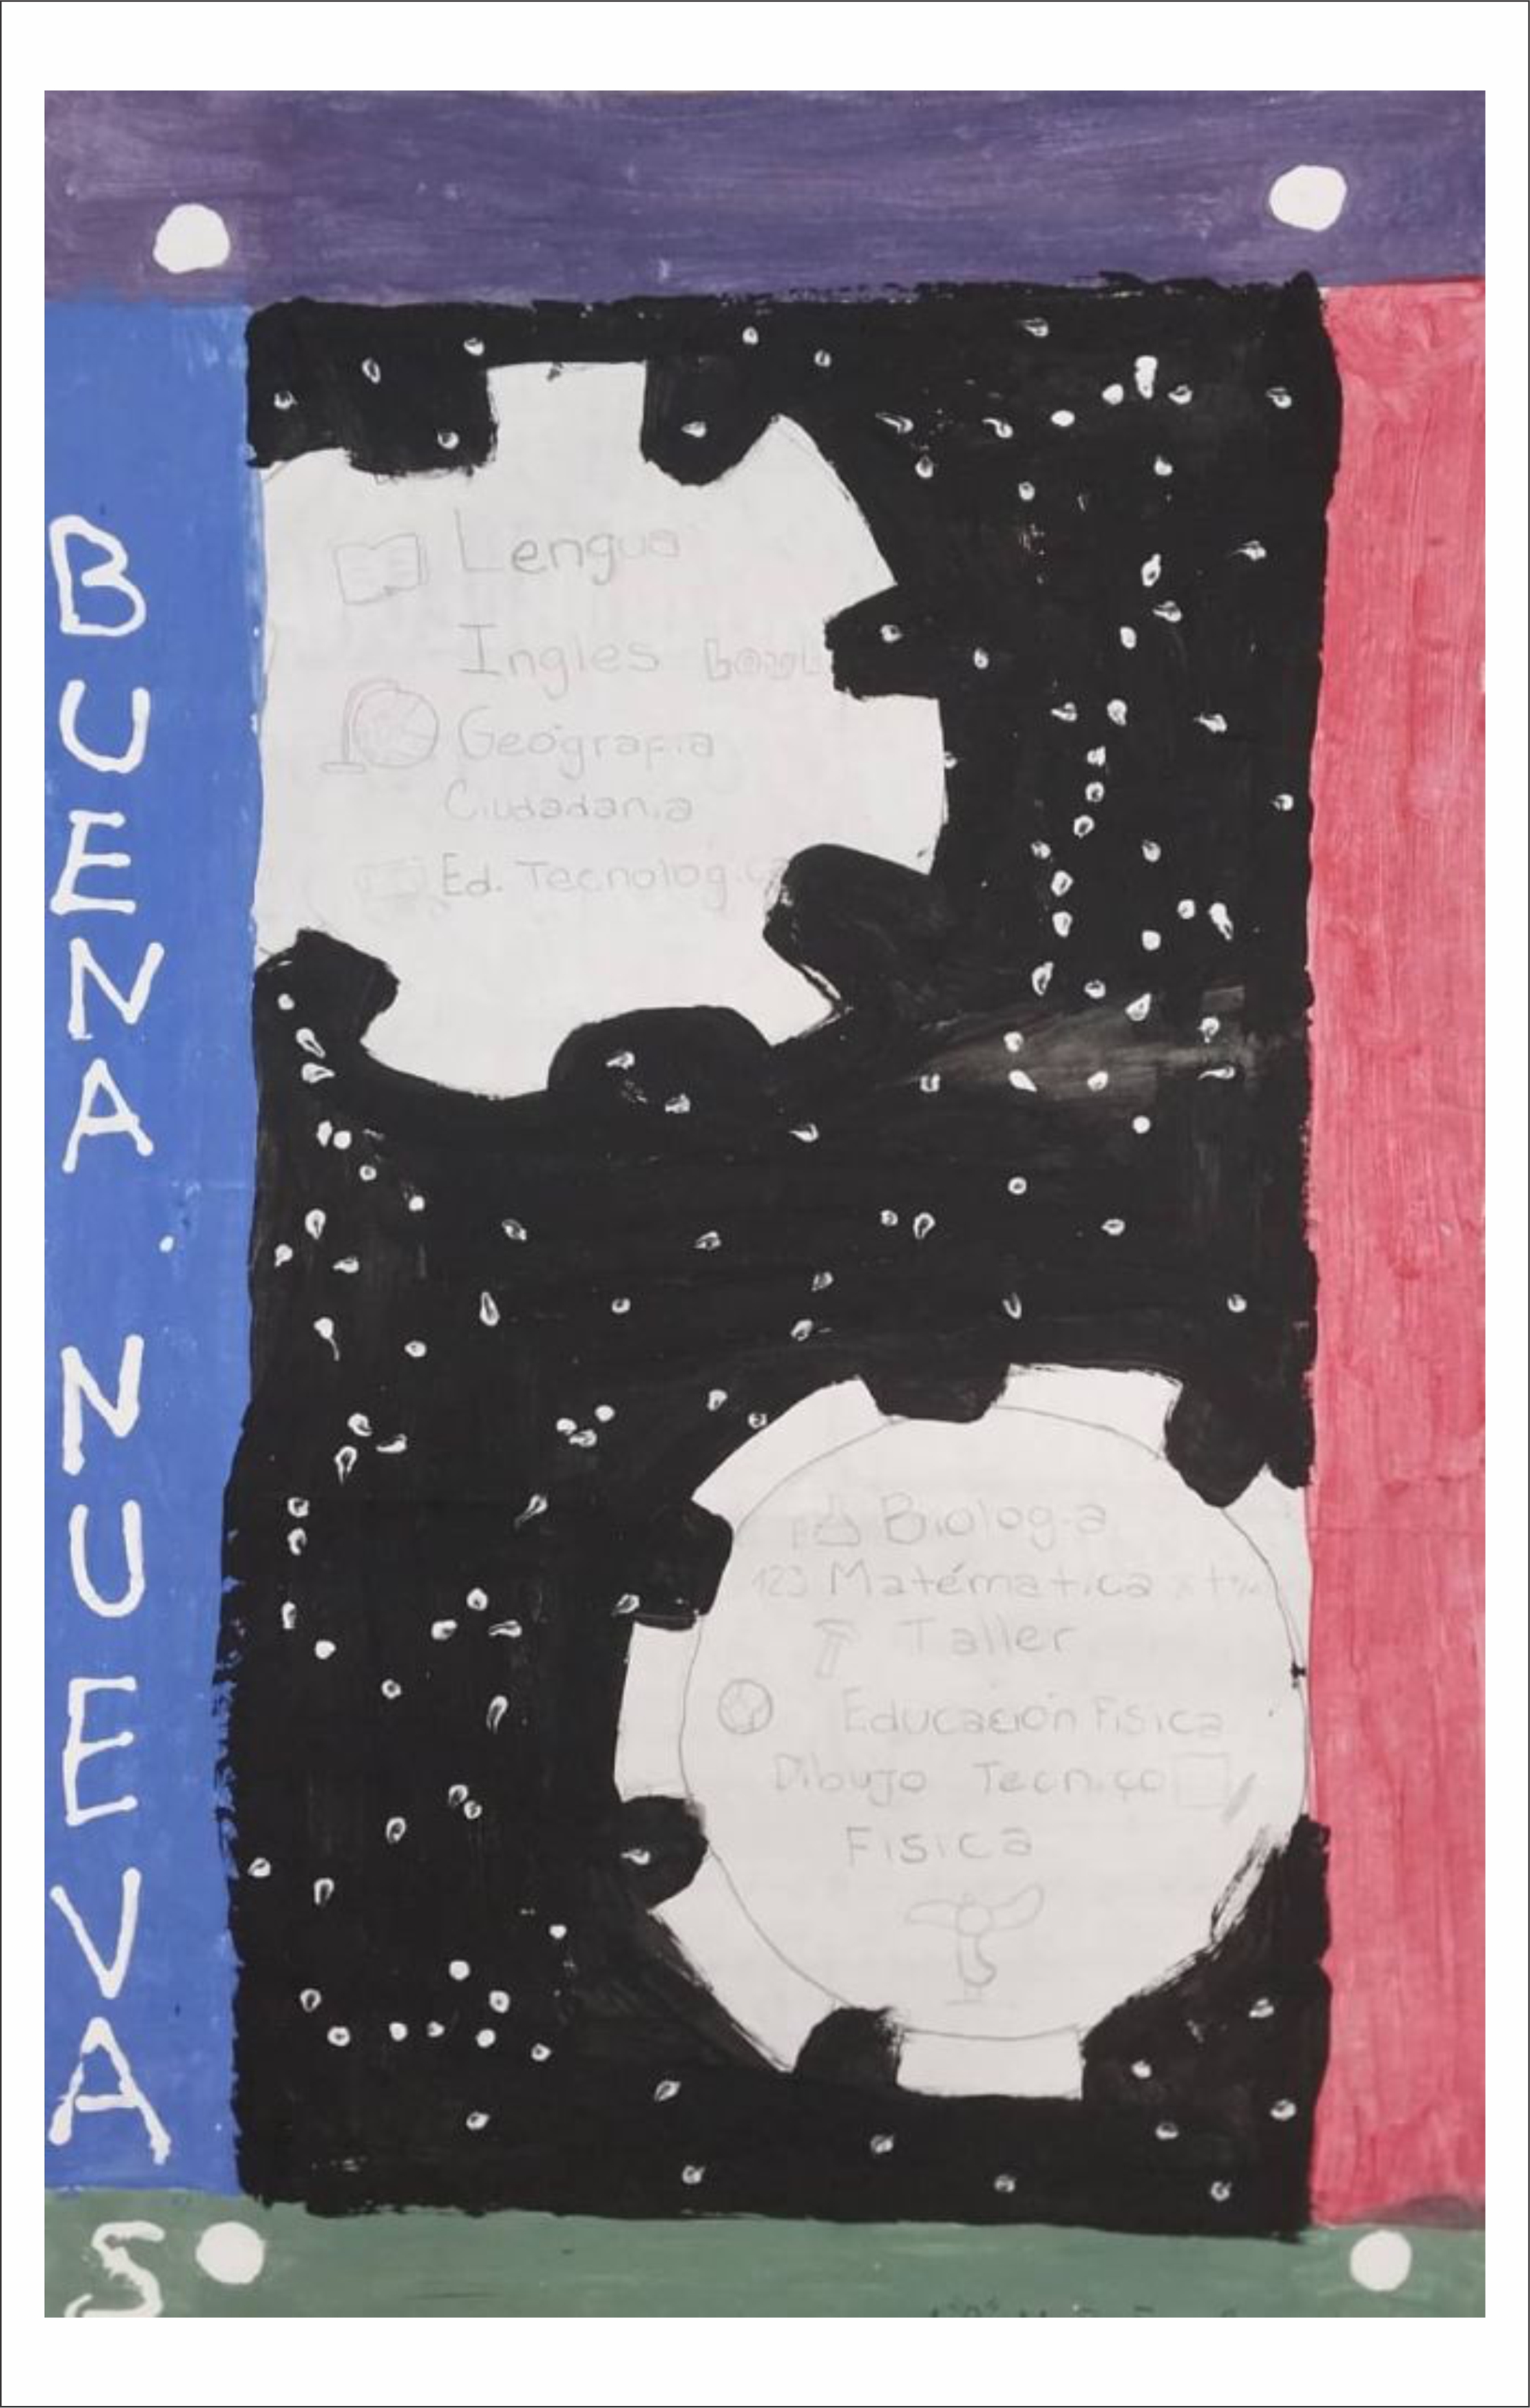 BUENA NUEVAS
Lengua
Ingles
Geografia
Ciudadania
Ed. Tecnologica
Biologia
123 Matématica
Taller
Educación Fisica
Dibujo Tecnico
Fisica